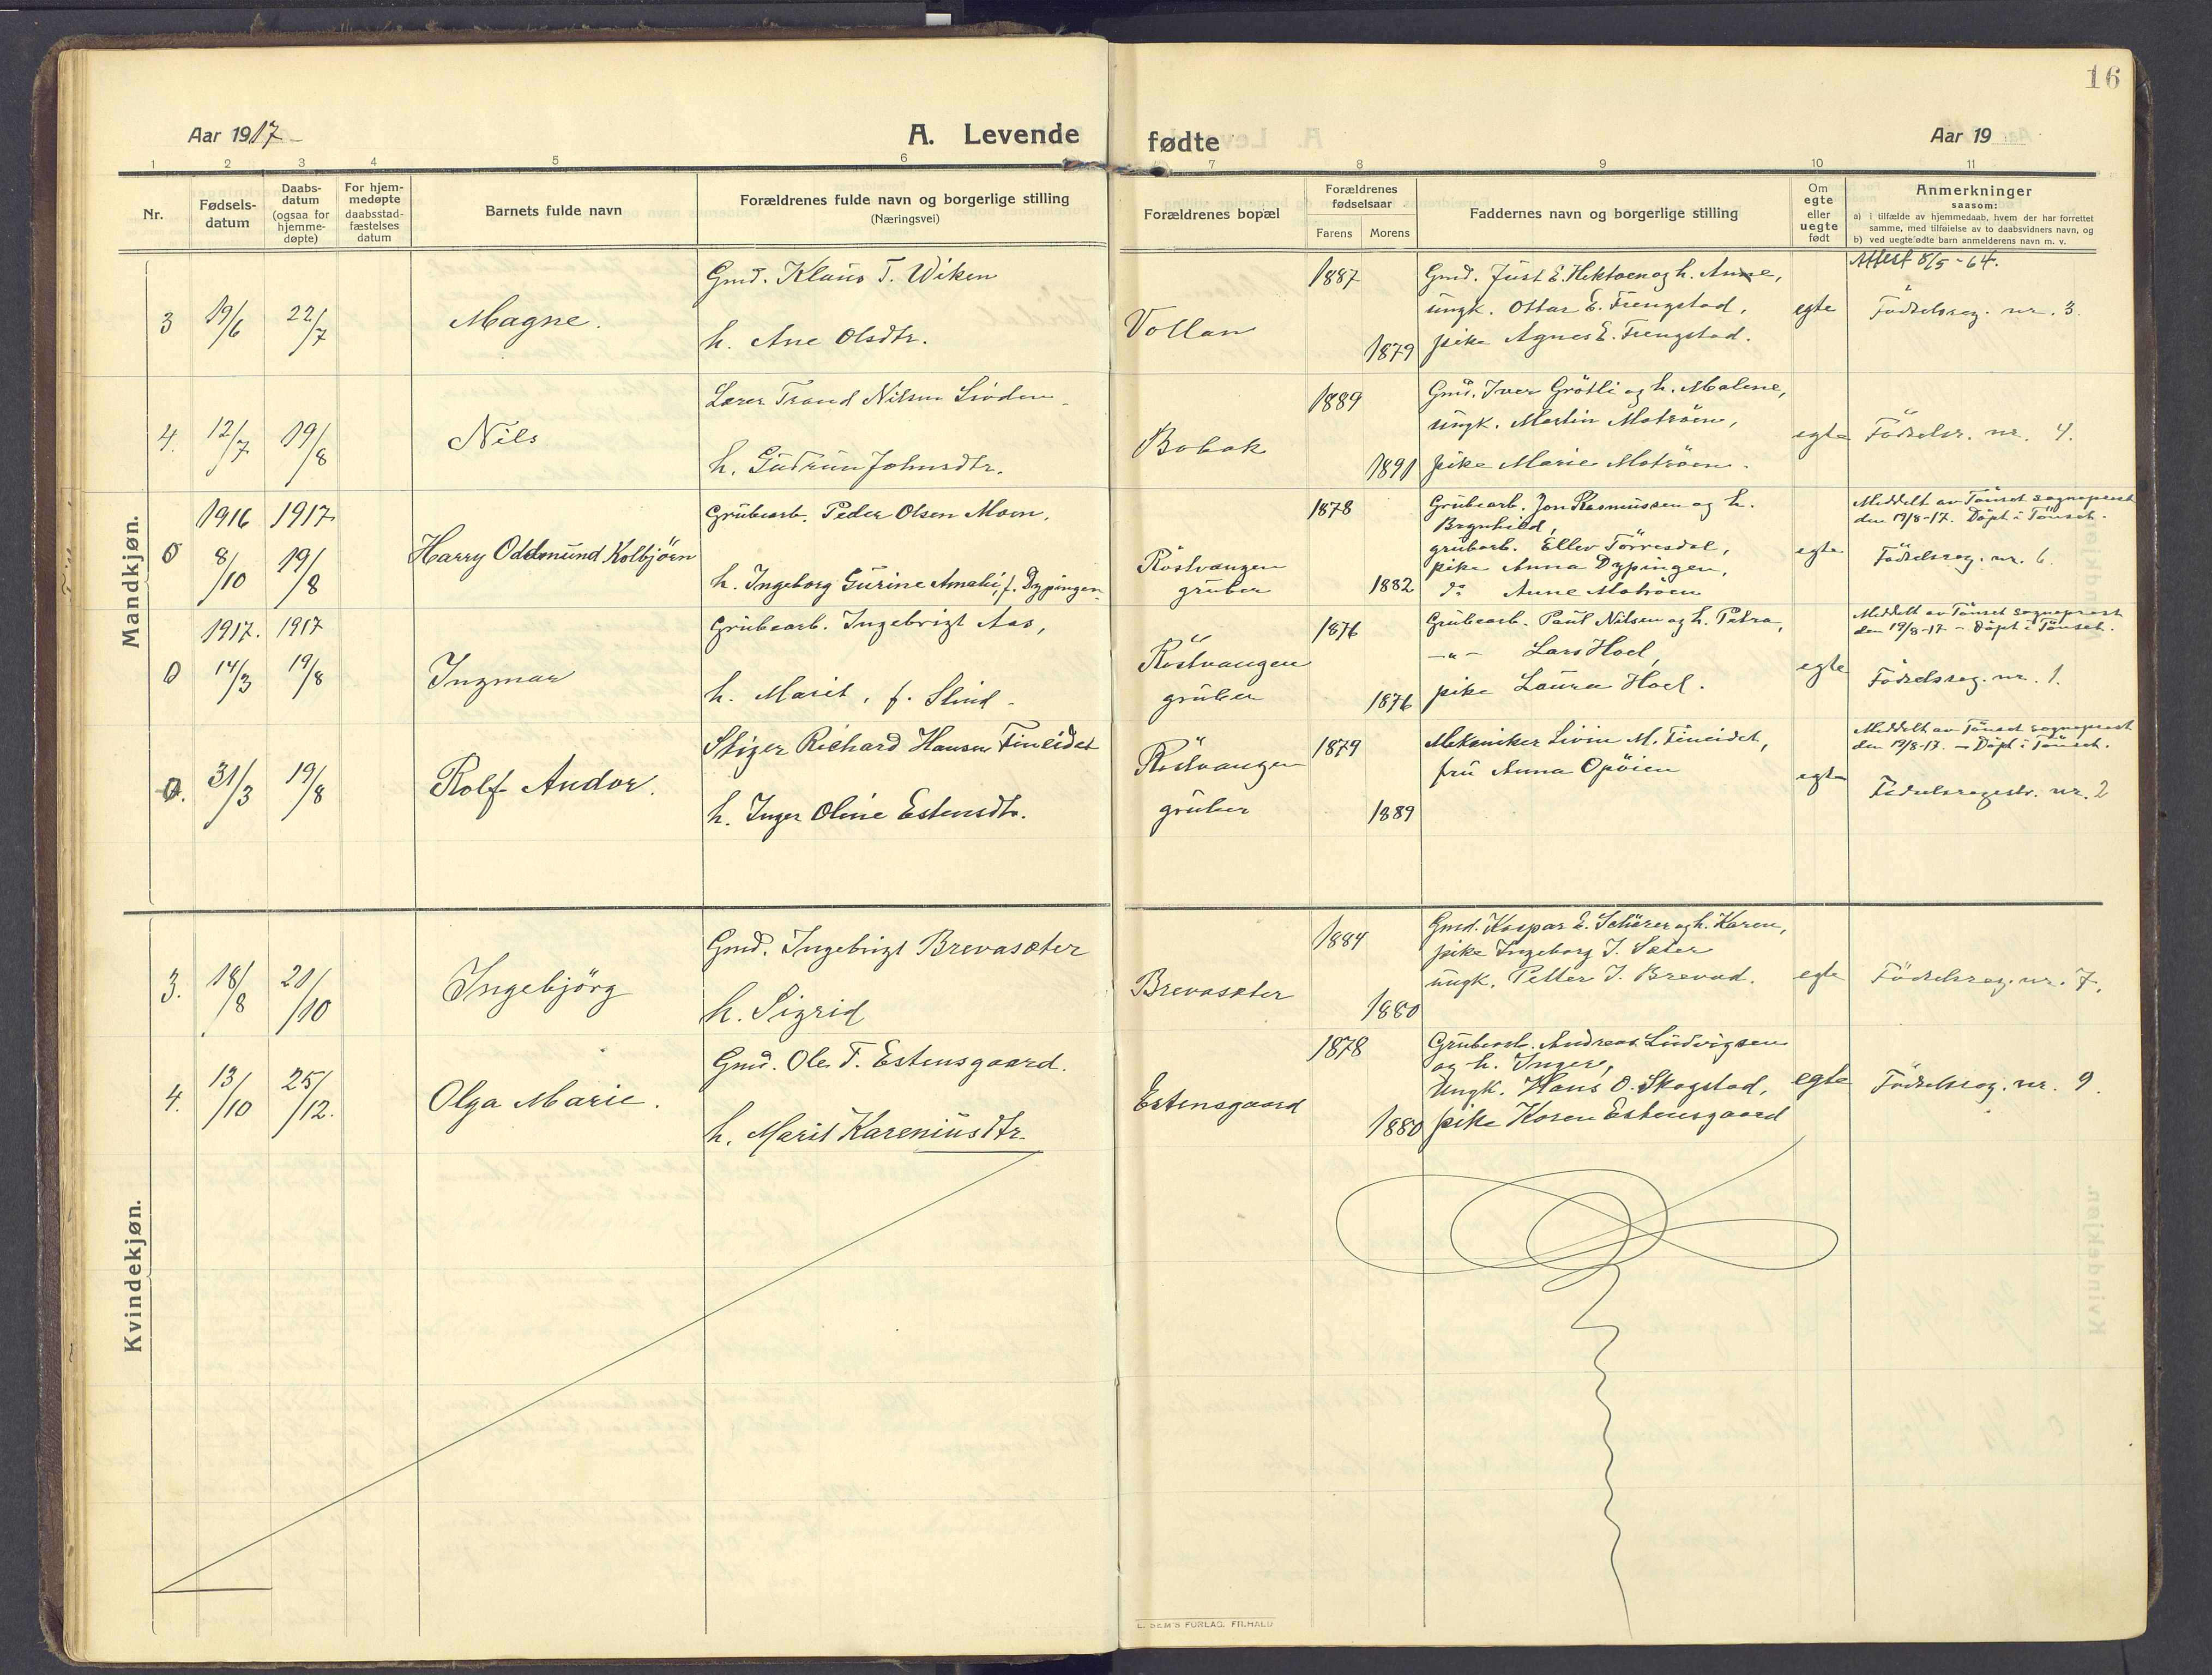 16
Aar 1917
A. Levende
fødte
Aar 19
1 2 3 4 5 6 7 8 9 10 11
Nr.
Fødsels-
datum
Daabs-
datum
(ogsaa for
hjemme-
døpte)
For hjem-
medøpte
daabsstad-
fæstelses
datum
Barnets fulde navn
Forældrenes fulde navn og borgerlige stilling
(Næringsvei)
Forældrenes bopæl
Forældrenes
fødselsaar
Farens Morens
Faddernes navn og borgerlige stilling
Om
egte
eller
uegte
født
Anmerkninger
saasom:
a) i tilfælde av hjemmedaab, hvem der har forrettet
samme, med tilføielse av to daabsvidners navn, og
b) ved uegte fødte barn anmelderens navn m. v.
Mandkjøn.
3 19/6 22/7
Magne.
Gmd. Klaus T. Wiken
h. Ane Olsdtr.
Vollan
1887
1879
Gmd. Just E. Hektoen og h. Anne,
ungk. Ottar E. Trengstad,
pike Agnes E. Trengstad.
egte
Attest 8/5-64.
Fødselsreg. nr. 3.
4. 12/7 19/8
Nils
Lærer Trond Nilsen
h. Gudrun Johnsdtr.
Bobak
1889
1891
Gmd. Iver Grötli og h. Malene,
ungk. Martin Moträen,
pike Marie Moträen.
egte
Födselsr. nr. 4.
0
1916 1917
8/10 19/8
Harry Oddmund Kolbjörn
Grubearb. Peder Olsen Moen,
h. Ingeborg Gurine Amalie, f. Dypingen
Röstvangen
gruber
1878
1882
Grubearb. Jon Rasmussen og h.
Brynhild,
grubarb. Ellev Törresdal,
pike Anna Dypingen,
do Anne Moträen
egte
Meddelt av Tönset sogneprest
den 19/8-17. Döpt i Tönset.
Födselsreg. nr. 6.
0
1917. 1917
14/3 19/8
Ingmar
Grubearb. Ingebrigt Aas,
h. Marit, f. Slind.
Röstvangen
gruber
1876
1876
Grubearb. Paul Nilsen og h. Petra,
-"- Lars Hoel,
pike Laura Hoel.
egte
Meddelt av Tönset sogneprest
den 19/8-17 - Döpt i Tönset.
Födselsreg. nr. 1.
0. 31/3 19/8
Rolf Andor.
Stiger Richard Hansen Fineidet
h. Inger Oline Estensdtr.
Röstvangen
gruber
1879
1889
Mekaniker M. Fineidet,
fru Anna Opöien
egte
Meddelt av Tönset sogneprest
den 19/8-17. - Döpt i Tönset.
Fødselsregistr. nr. 2
Kvindekjøn.
3. 18/8 21/10
Ingebjörg
Gmd. Ingebrigt Brevasæter
h. Sigrid
Brevasæter
1884
1880
Gmd. Kaspar E. Schärer og h. Karen,
pike Ingeborg J. Sæter
ungk. Petter J. Brevad.
egte
Födselsreg. nr. 7.
4. 13/10 25/12.
Olga Marie.
Gmd. Ole T. Estensgaard.
h. Marit Kareniusdtr.
Estensgaard
1878
1880
Grubearb. Andreas Ludvigsen
og h. Inger,
Ungk. Hans O. Skogstad,
pike Karen Estensgaard
egte
Födselsreg. nr. 9.
E. SEM'S FORLAG. FR.HALD